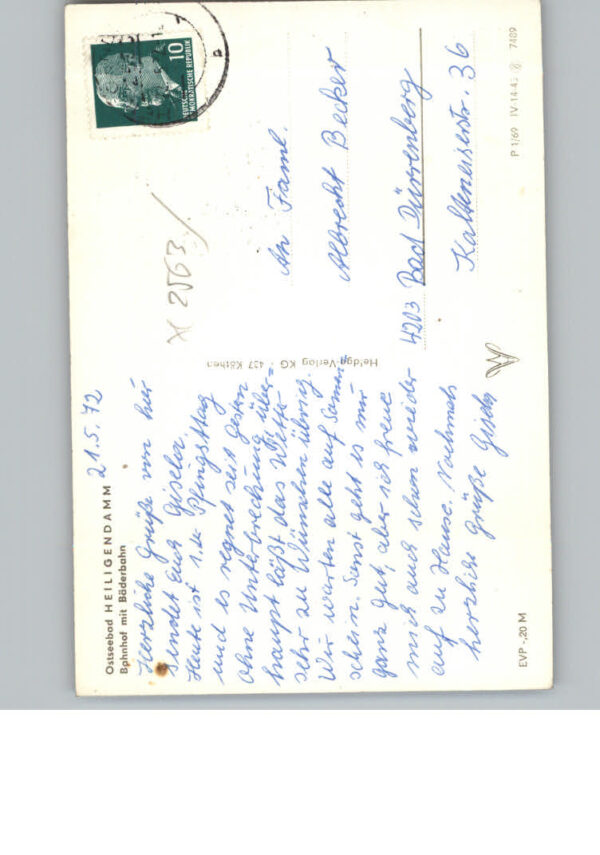 Ostseebad HEILIGENDAMM
Bahnhof mit Bäderbahn
21.5.72
Herzliche Grüße von hier
sendet Euch Gisela.
Heute ist 1. Pfingsttag
und es regnet seit gestern
ohne Unterbrechung, über-
haupt läßt das Wetter
sehr zu Wünschen übrig.
Wir warten alle auf Sonnen-
schein. Sonst geht es mir
ganz gut, aber ich freue
mich auch schon wieder
auf zu Hause. Nochmals
herzliche Grüße Gisela
EVP -,20 M
Heldge-Verlag KG · 437 Köthen
x 2563/
10
DEUTSCHE
DEMOKRATISCHE REPUBLIK
An Faml.
Albrecht Becker
4203 Bad Dürrenberg
Kalkreiserstr. 36
P 1/69 IV-14-45 7489